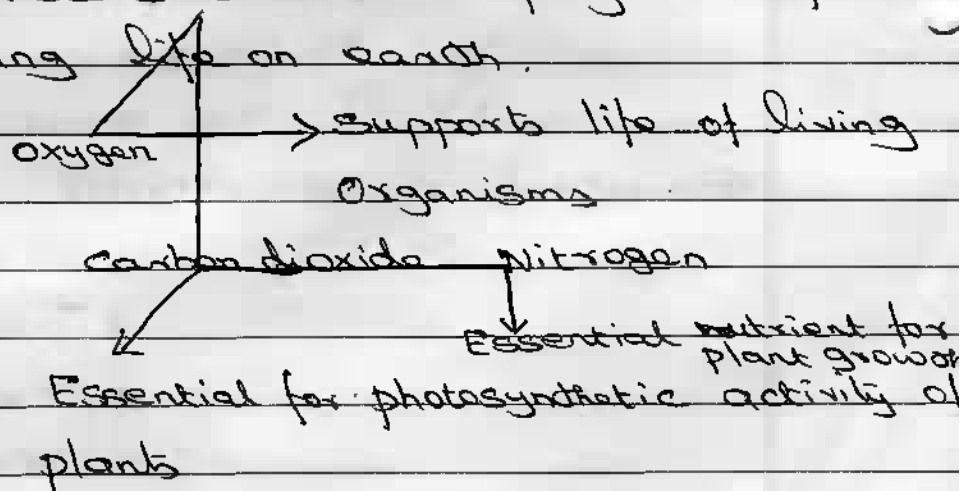 ing life on earth.
Oxygen
Supports life of living
Organisms
Carbon dioxide Nitrogen
Essential nutrient for
plant growth
Essential for photosynthetic activity of
plants